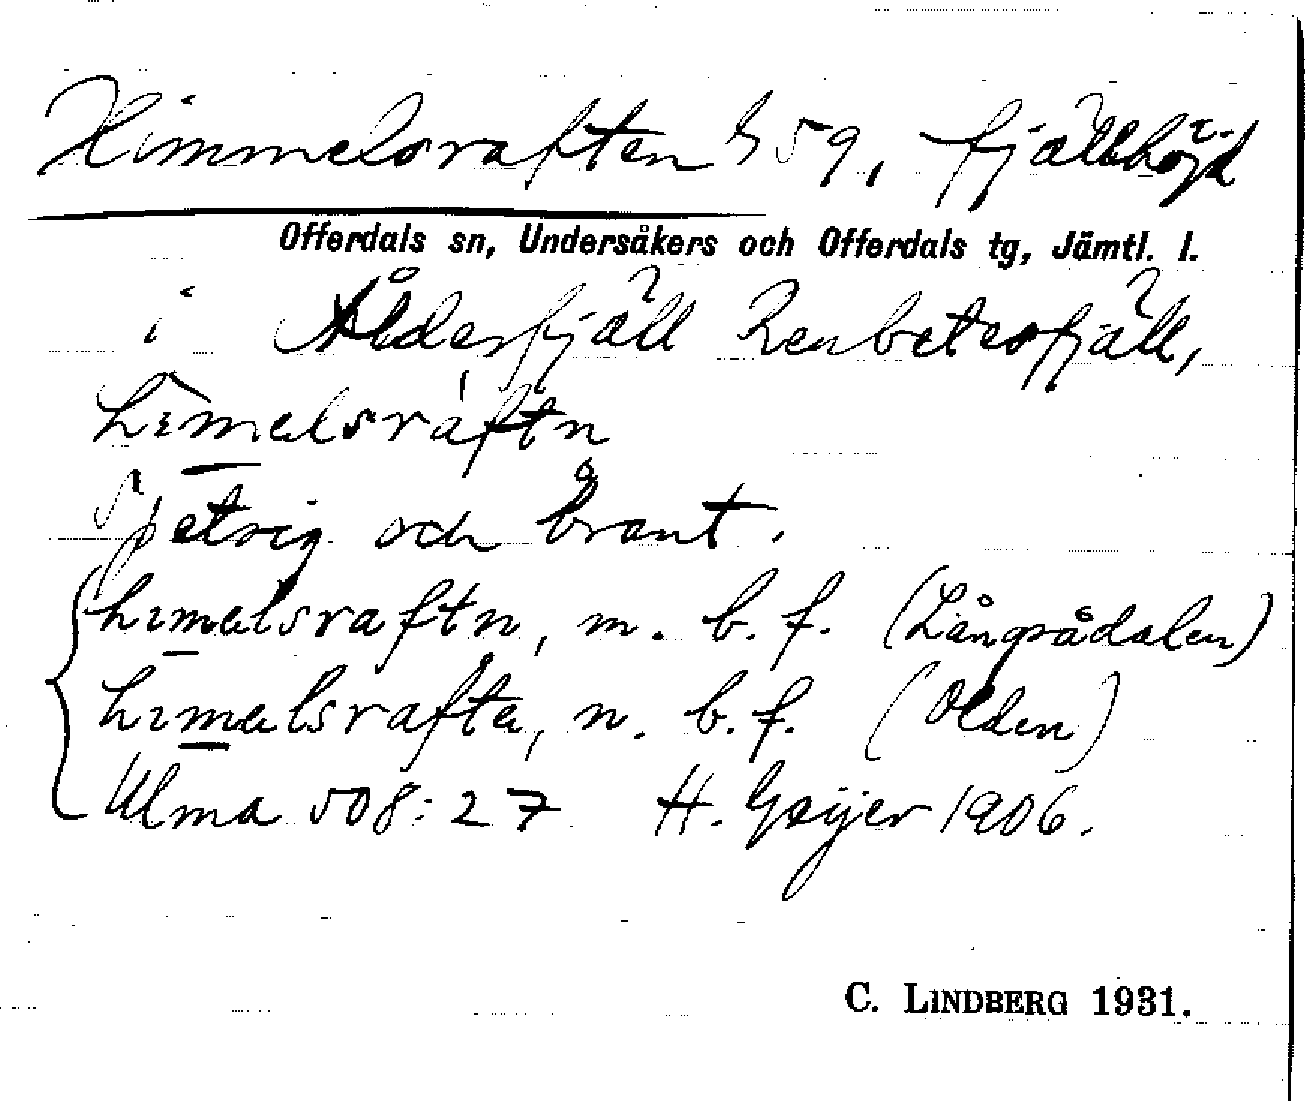 Himmelsraften 859, fjällhöjd
Offerdals sn, Undersåkers och Offerdals tg, Jämtl. l.
i Ålderfjäll Renbetesfjäll,
himalsráftn
Spetsig och brant.
himalsraftn, m. b. f. (Långsådalen)
himalsrafta, n. b. f. (Olden)
Ulma 508:27 H. Geijer 1906.
C. LINDBERG 1931.